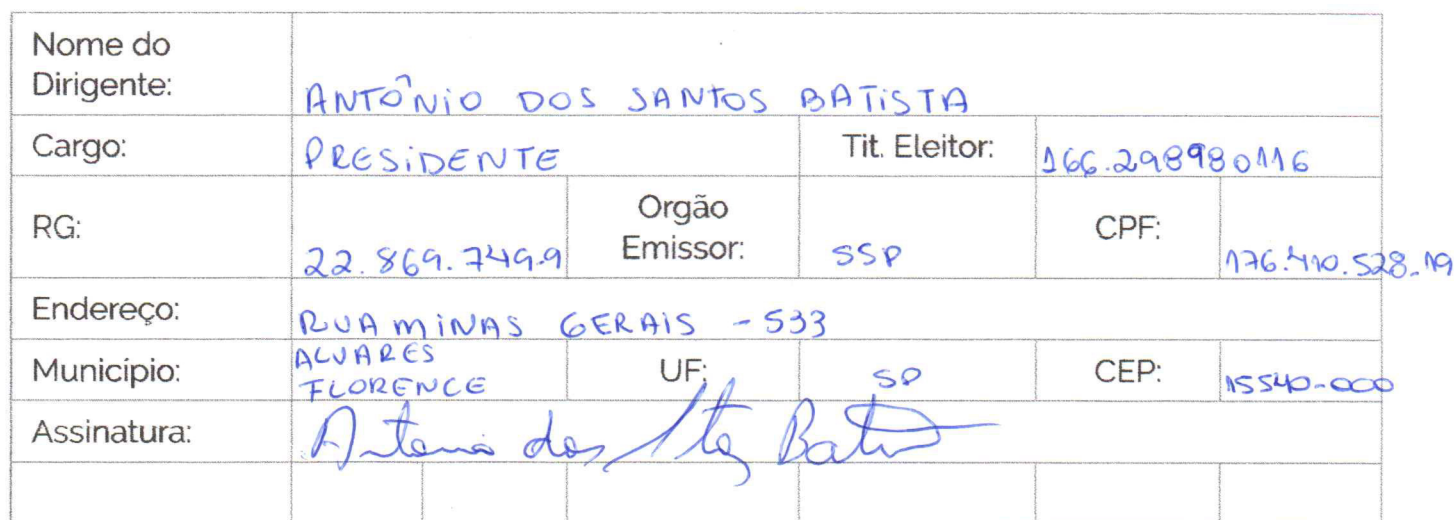 Nome do
Dirigente: ANTÔNIO DOS SANTOS BATISTA
Cargo: PRESIDENTE Tit. Eleitor: 166.298980116
RG: 22.869.749.9 Orgão Emissor: SSP CPF: 176.410.528-19
Endereço: RUA MINAS GERAIS - 533
Município: ALVARES FLORENCE UF: SP CEP: 15540-000
Assinatura: Antonio dos Stos Batista